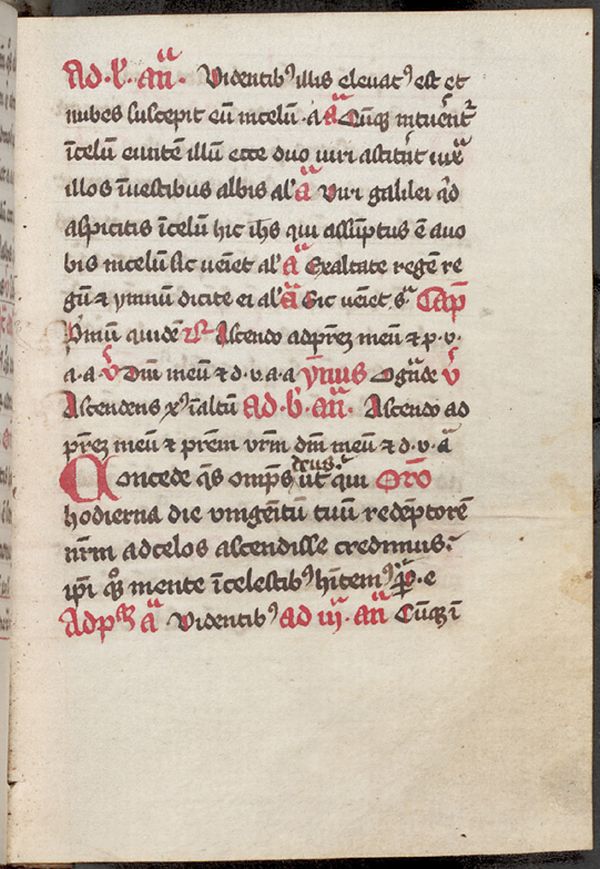 Ad · l᷎ · an̄ · Videntibꝰ illis eleuatꝰ est et
nubes suscepit eū īncelū · a · a̅ Cūqꝫ intuer̄et᷑
īcelū euntē illū ecce duo uiri astiter̄t iux̄
illos īuestibus albis al̓ a̅ Viri galilei qͥd
aspicitis īcelū hic ih̄s qui assūptus ē auo
bis incelū sic ueīet al̓ a̅ Exaltate regē re
gū ⁊ ymnū dicite ei al̓ a̅ Sic ueīet · s᷑ Cap̄
Pͥmū quidē ℟ Ascendo adpr̄eꝫ meū ⁊ p · v ·
a · a · v̄ Dm̄ meū ⁊ d · v · a · a ȳnus Ogn̄de v̄
Ascendens xꝰ īaltū ad · b᷎ · an̄ · Ascendo ad
pr̄eꝫ meū ⁊ pr̄em vr̄m dm̄ meū ⁊ d · v · a̅
Concede q̄s omp̄s deus · ut̄ qui Or̄o
hodierna die vnigenitū tuū redēptorē
nr̄m adcelos ascendisse credimus ·
ip̄i qͦꝫ mente īcelestibꝰ hītemꝰ · p̄ · e
Ad pͥꝫ a̅ Videntibꝰ ad iij · an̄ Cūqꝫ ī